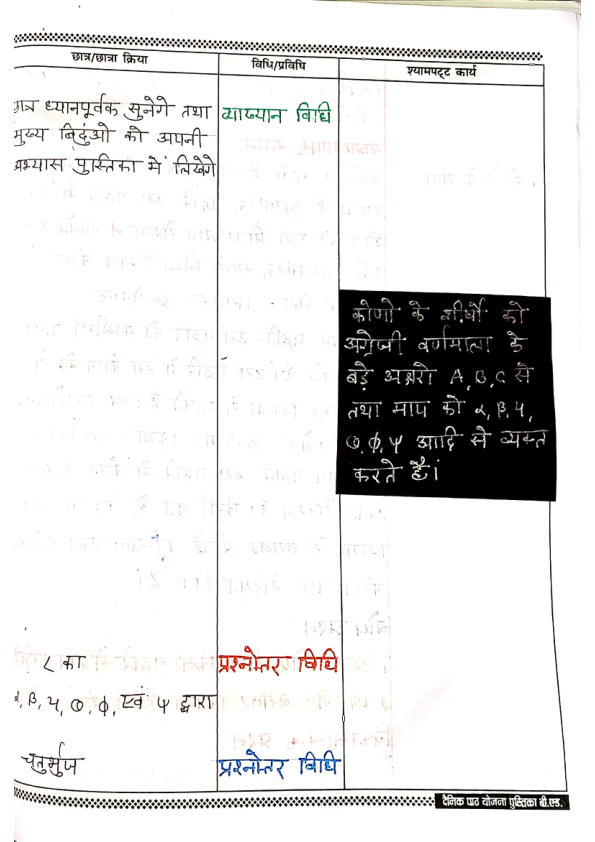 छात्र/छात्रा क्रिया
विधि/प्रविधि
श्यामपट्ट कार्य
छात्र ध्यानपूर्वक सुनेगे तथा
मुख्य बिदुंओ को अपनी
अभ्यास पुस्तिका में लिखेगे
व्याख्यान विधि
कोणो के शीर्षो को
अंग्रेजी वर्णमाला के
बड़े अक्षरो A, B, C से
तथा माप को α, β, γ,
θ, ϕ, ψ आदि से व्यक्त
करते है।
∠ का
प्रश्नोतर विधि
α, β, γ, θ, ϕ, एवं ψ द्वारा
चतुर्भुज
प्रश्नोतर विधि
दैनिक पाठ योजना पुस्तिका बी.एड.